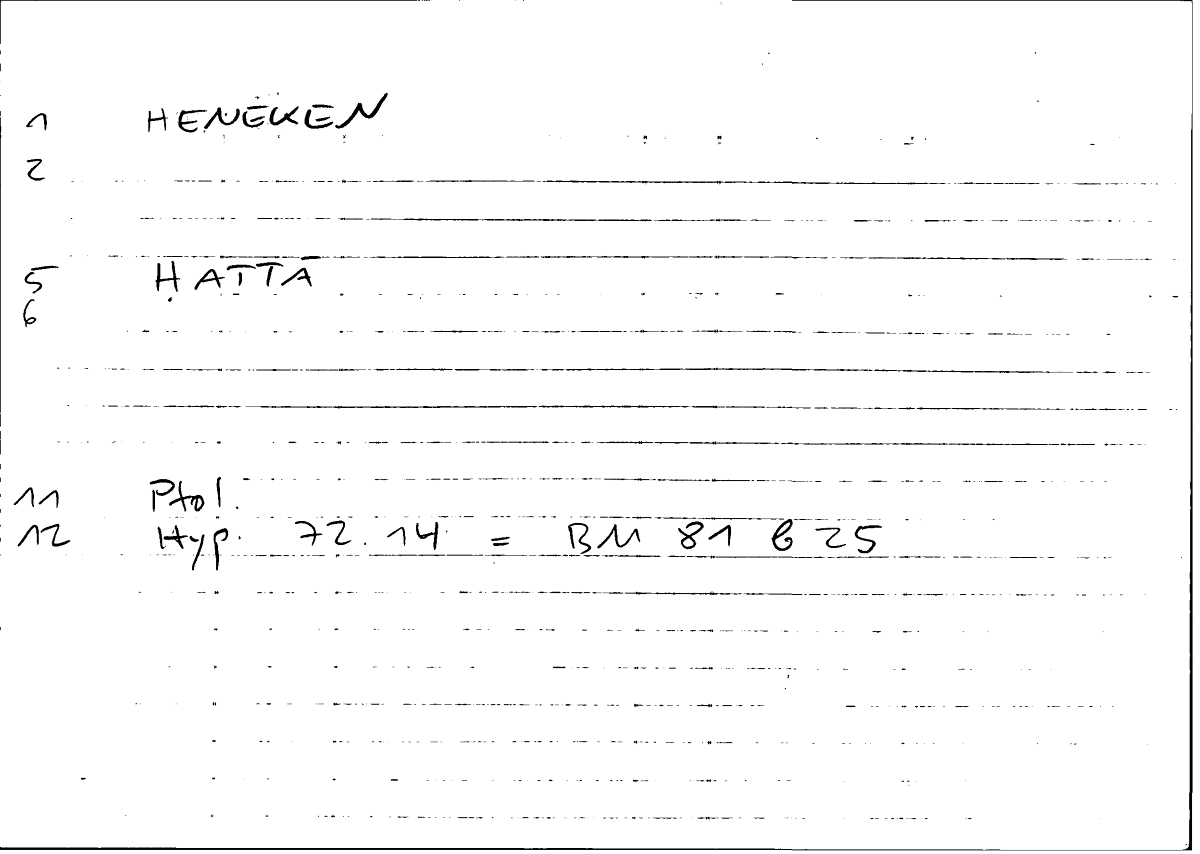 1 HENEKEN
2
5 ḤATTĀ
6
11 Ptol.
12 Hyp. 72.14 = BM 81 b 25